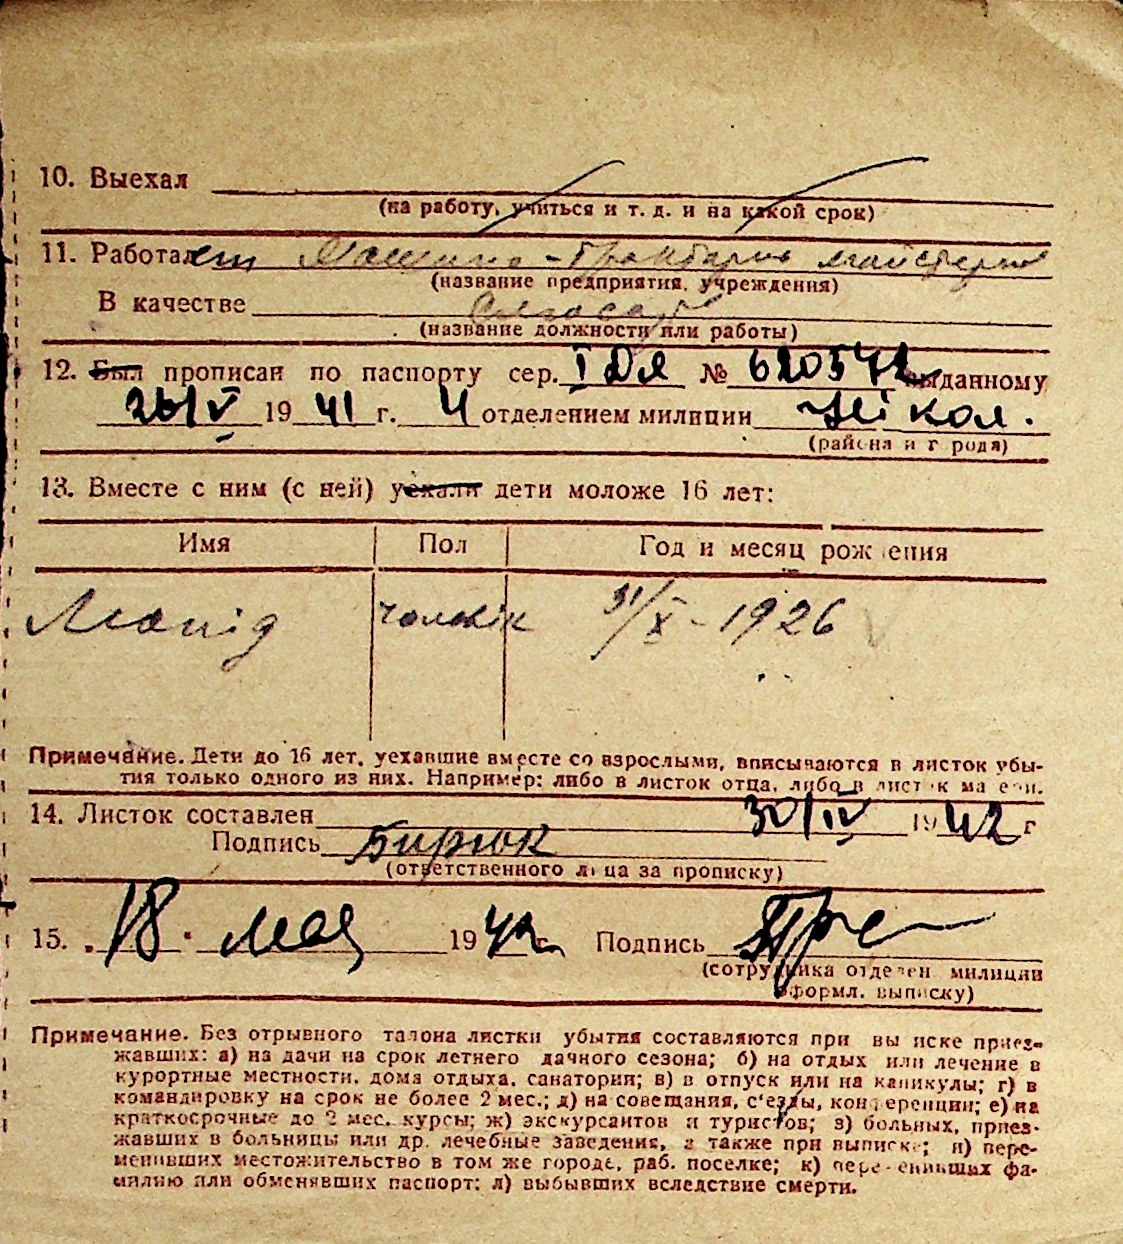 10. Выехал
(на работу, учиться и т. д. и на какой срок)
11. Работает Машино-Тракторно майстерня
(название предприятия, учреждения)
В качестве Слюсар
(название должности или работы)
12. Был прописан по паспорту сер. I ДЯ № 620572 выданному
26/V 1941 г. 4 отделением милиции Нікол.
(района и города)
13. Вместе с ним (с ней) уехали дети моложе 16 лет:
Имя Пол Год и месяц рождения
Леонід чоловік 31/X - 1926
Примечание. Дети до 16 лет, уехавшие вместе со взрослыми, вписываются в листок убы-
тия только одного из них. Например: либо в листок отца, либо в листок матери.
14. Листок составлен 30/IV 1942 г
Подпись Бирюк
(ответственного лица за прописку)
15. "18" мая 1942 г. Подпись
(сотрудника отделен. милиции
оформл. выписку)
Примечание. Без отрывного талона листки убытия составляются при выписке приез-
жавших: а) на дачи на срок летнего дачного сезона; б) на отдых или лечение в
курортные местности, дома отдыха, санатории; в) в отпуск или на каникулы; г) в
командировку на срок не более 2 мес.; д) на совещания, с'езды, конференции; е) на
краткосрочные до 2 мес. курсы; ж) экскурсантов и туристов; з) больных, приез-
жавших в больницы или др. лечебные заведения, а также при выписке; и) пере-
менивших местожительство в том же городе, раб. поселке; к) переменивших фа-
милию или обменявших паспорт; л) выбывших вследствие смерти.